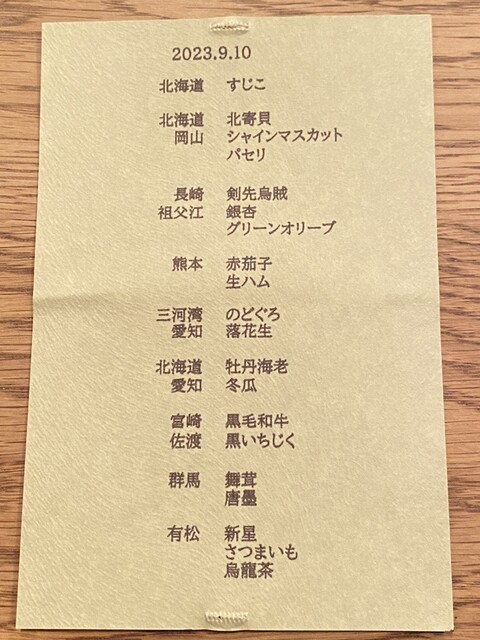 2023.9.10
北海道 すじこ
北海道 北寄貝
岡山 シャインマスカット
パセリ
長崎 剣先烏賊
祖父江 銀杏
グリーンオリーブ
熊本 赤茄子
生ハム
三河湾 のどぐろ
愛知 落花生
北海道 牡丹海老
愛知 冬瓜
宮崎 黒毛和牛
佐渡 黒いちじく
群馬 舞茸
唐墨
有松 新星
さつまいも
烏龍茶